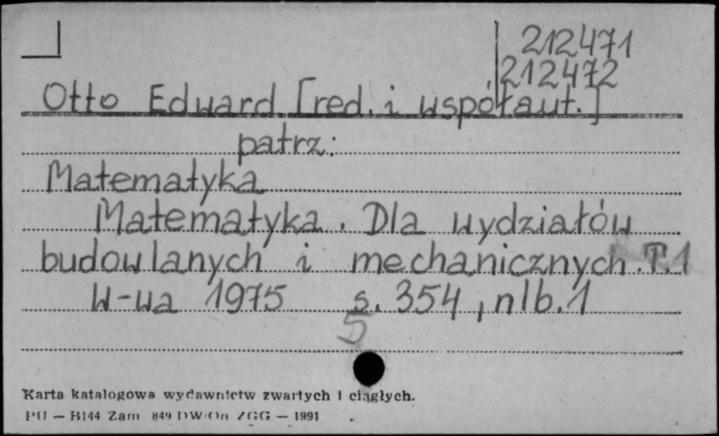 212471
212472
Otto Edward [red. i współaut.]
patrz:
Matematyka
Matematyka. Dla wydziałów
budowlanych i mechanicznych. T.1
W-wa 1975 s. 354, nlb. 1
5
Karta katalogowa wydawnictw zwartych i ciągłych.
PU — B144 Zam 849 DW/On ZGG — 1991